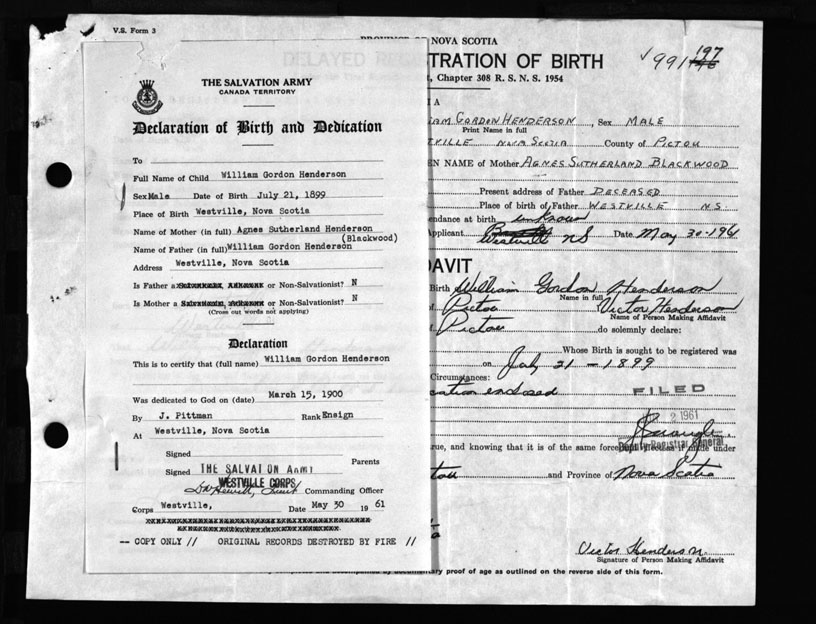 V.S. Form 3
THE SALVATION ARMY
CANADA TERRITORY
Declaration of Birth and Dedication
To
Full Name of Child William Gordon Henderson
Sex Male Date of Birth July 21, 1899
Place of Birth Westville, Nova Scotia
Name of Mother (in full) Agnes Sutherland Henderson
(Blackwood)
Name of Father (in full) William Gordon Henderson
Address Westville, Nova Scotia
Is Father a or Non-Salvationist? N
Is Mother a or Non-Salvationist? N
(Cross out words not applying)
Declaration
This is to certify that (full name) William Gordon Henderson
Was dedicated to God on (date) March 15, 1900
By J. Pittman Rank Ensign
At Westville, Nova Scotia
Signed
Parents
Signed THE SALVAT ON ARMY
WESTVILLE CORPS
Commanding Officer
Corps Westville, Date May 30 19 61
-- COPY ONLY // ORIGINAL RECORDS DESTROYED BY FIRE //
PROVINCE OF NOVA SCOTIA
DELAYED REG TRATION OF BIRTH
, Chapter 308 R. S. N. S. 1954
991 197
IAM GORDON HENDERSON, Sex MALE
Print Name in full
TVILLE NOVA SCOTIA County of PICTOU
EN NAME of Mother AGNES SUTHERLAND BLACKWOOD
Present address of Father DECEASED
Place of birth of Father WESTVILLE N.S.
endance at birth unknown
pplicant Westville NS Date May 30-1961
DAVIT
Birth William Gordon Henderson
Name in full
Pictou Victor Henderson
Name of Person Making Affidavit
Pictou do solemnly declare:
Whose Birth is sought to be registered was
on July 21-1899
Circumstances:
cation enclosed
FILED
2 1961
Deputy Registrar General
rue, and knowing that it is of the same force made under
tou and Province of Nova Scotia
Victor Henderson
Signature of Person Making Affidavit
documentary proof of age as outlined on the reverse side of this form.